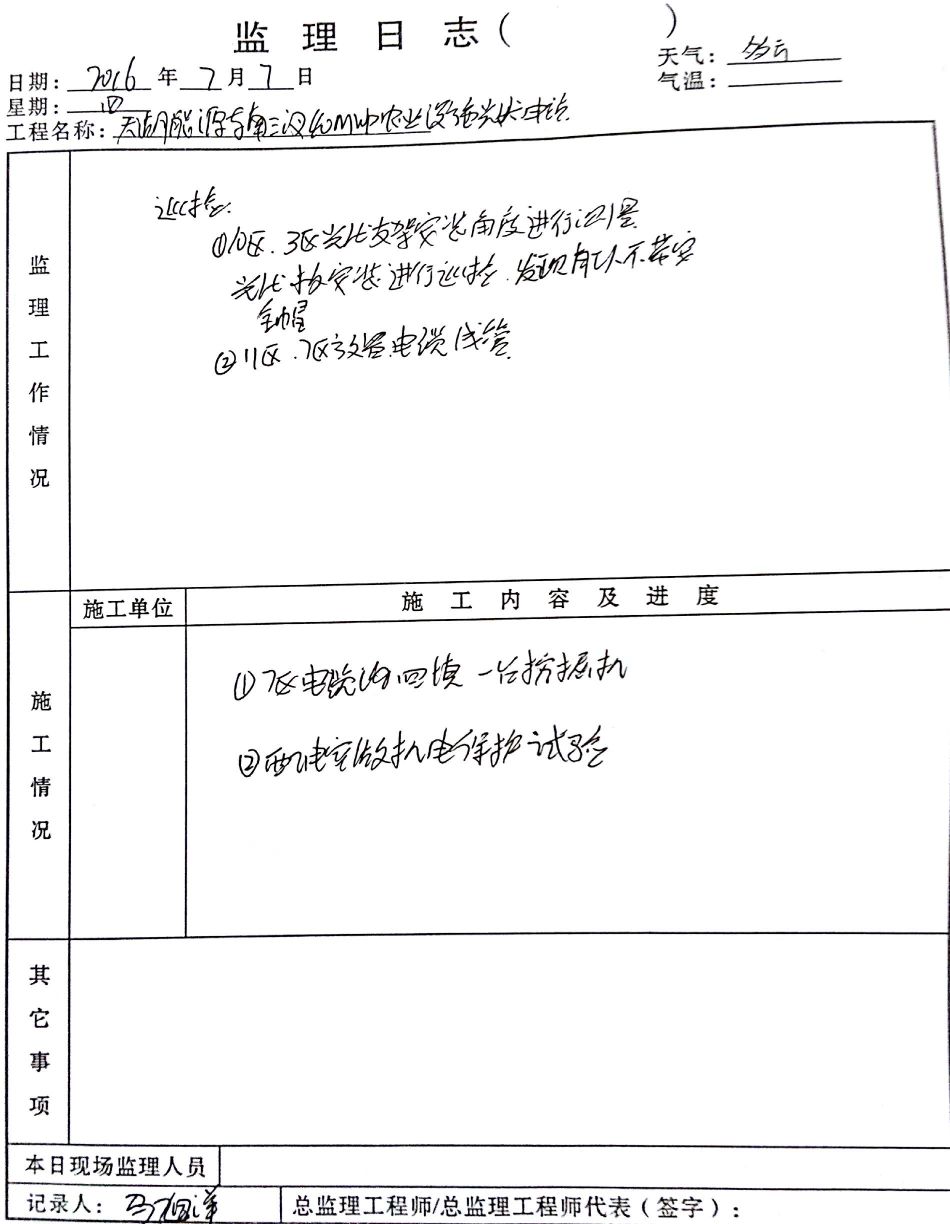 监理日志（ ）
天气：多云
日期：2016年7月7日
气温：
星期：四
工程名称：天湖能源 南三汉 MWP农业设施光伏电站
监理工作情况
巡检：
①10区.3区光伏支架安装角度进行测量
光伏板安装进行巡检.发现有工人不带安
全帽
②11区.7区放置电缆线管
施工单位
施工内容及进度
施工情况
①7区电缆沟回填 一台挖掘机
②配电室做机电保护试验
其它事项
本日现场监理人员
记录人：马旭洋
总监理工程师/总监理工程师代表（签字）：